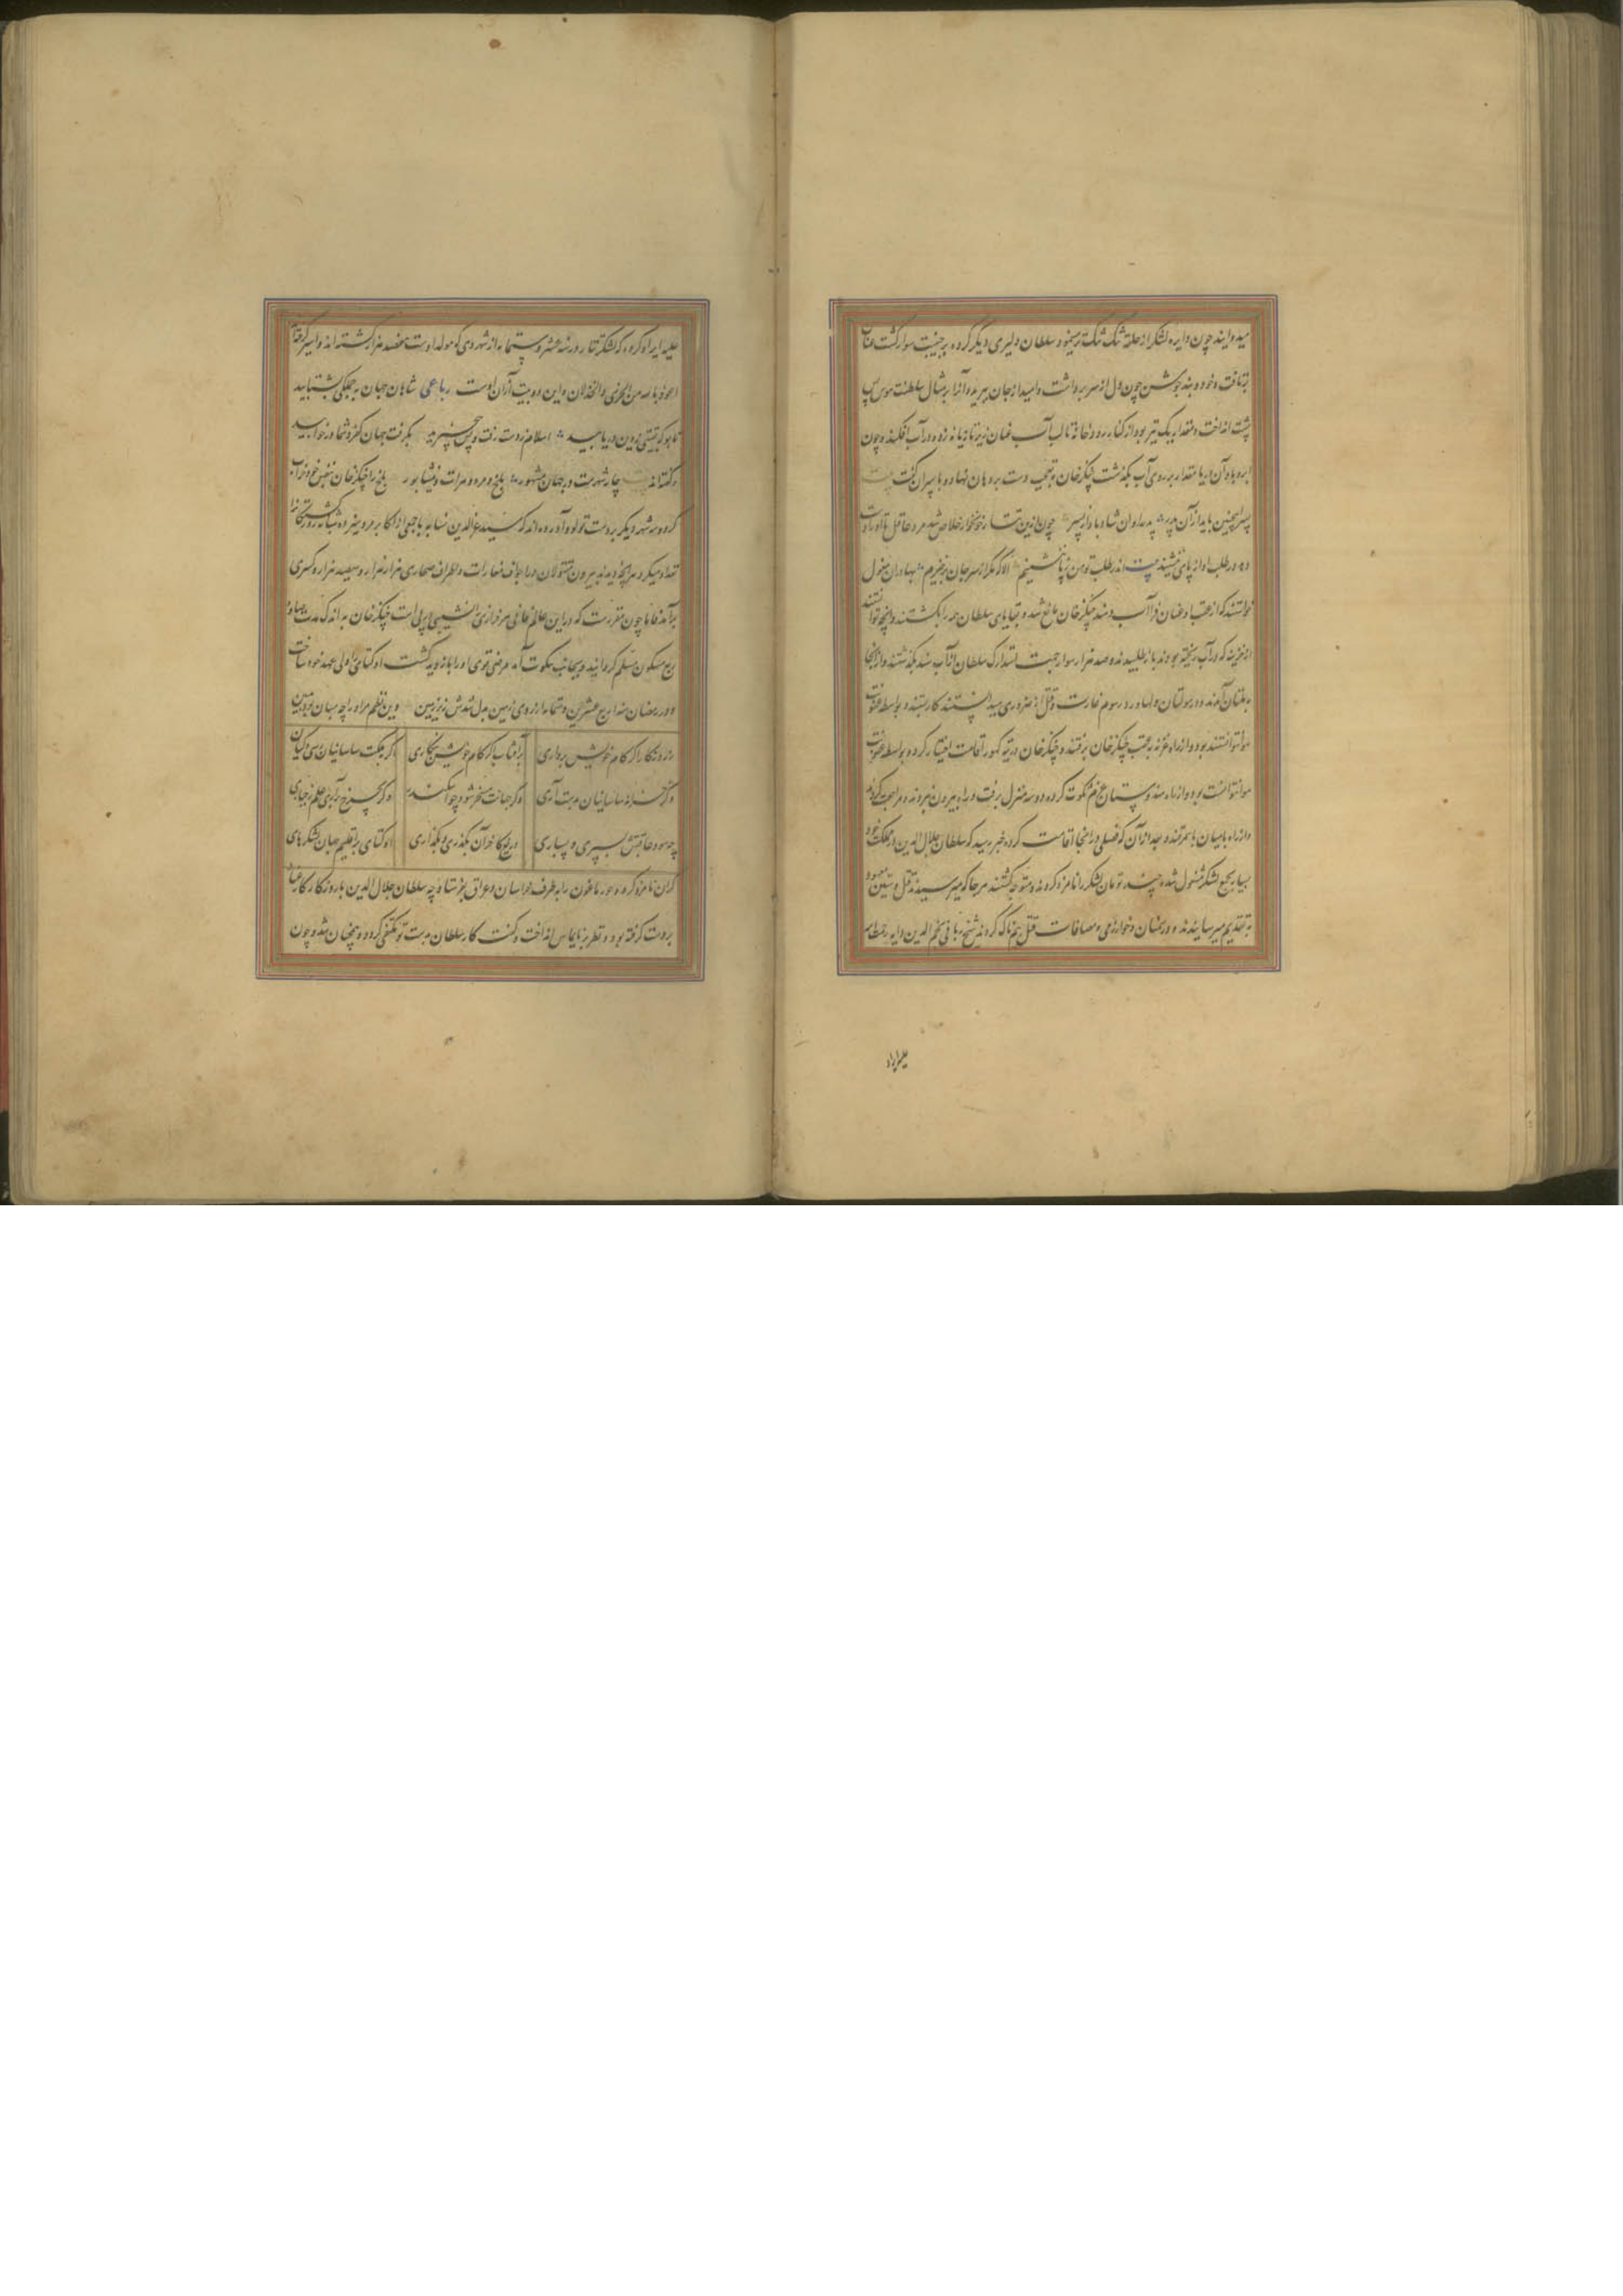 میدوانید چون دایره لشکر از حلقه تنگ تنگ تر میشود سلطان دلیری دیگر کرده بر جنیبت سوار گشت عنان
برتافت و خود و بند جوشن چون دل از سر برداشت و امید از جان ببرید و آنرا بر مثال سلطنت موس پس
پشت انداخت و مقدار یک تیر بود از کنار رودخانه تا لب آب عنان زیر تازیانه زد و در آب افکند و چون
ابر و باد آن دریا مقدار بر روی آب بگذشت چنگز خان بتعجب دست بر دهان نهاد و با پسران گفت بیت
پسر اینچنین باید از آن پدر پدید آوران شاه با داد پسر چون ازین تتار خونخوار خلاص شد مرد عاقل تا او را
در طلب او از پای ننشیند بیت اندر طلب تو من ز پا ننشینم الا که مگر از سر جان برخیزم بهادران مغول
خواستند که از عقب او عنان فرا آب دهند چنگز خان مانع شد و بقایای سلطان همه را بکشتند و آنچه توانستند
از خزینه که در آب ریخته بودند باز طلبیدند و صد هزار سوار جهت استدراک سلطان از آب سند بگذشتند و از آنجا
به ملتان آمدند و در مولتان و لهاور رسوم غارت و قتل از ضروری میدانستند کار بستند و بواسطه عفونت
هوا نتوانستند بود و از راه غزنه بعقب چنگز خان برفتند و چنگز خان در بویه کهور اقامت اختیار کرد و بواسطه عفونت
هوا نتوانست بود و از راه هندوستان عزم تنکوت کرده دو سه منزل برفت و راه بیرون نبردند و مراجعت کردند
و از راه بامیان بسمرقند و بعد از آن که فصلی در آنجا اقامت کرده خبر رسید که سلطان جلال الدین در مملکت خود
بسیار بجمع لشکر مشغول شده چند تومان لشکر را نامزد کردند و متوجه گشتند هر جا که میرسیدند قتل و شین معهود
بتقدیم میرسانیدند و در همنان و خوارزمی و مصافات قتل بیم ناک کردند شیخ ربانی نجم الدین دایه رحمة الله
علیه ایراد
علیه ایراد کرده که لشکر تتار در سنه عشر و ستمایه از شهر ری که مولد اوست هفصد هزار کشته اند و اسیر گرفته
اعوذ بالله من الخزی و الخذلان و این دو بیت از آن اوست رباعی شاهان جهان به جملگی بشتابید
تا بو که بقیتی ز دین دریابید اسلام ز دست رفت و بس بیخبرید بگرفت جهان کفر و شما در خوابید
و گفته اند بیت چار شهرست در جهان مشهور بلخ و مرو و هرات و نیشابور بلخ را چنگز خان بنفس خود خراب
کرد و سه شهر دیگر بر دست تولو و آورده اند که سید عز الدین نسابه با جمعی از اکابر مرو سیزده شبانه روز کشتگان را
تعداد میکرد هر آنچه دیدند بیرون مقتولان در اجواف مغارات و اطراف صحاری هزار هزار و سیصد هزار و کسری
برآمد فاما چون مقررست که در این عالم فانی هر فرازی را نشیبی در پی است چنگز خان به اندک مدت
ربع مسکون مسلم گردانید و بجانب تنکوت آمد مرضی قوی او را با زدید گشت اوکتای را ولی عهد خود ساخت
و در رمضان سنه اربع عشرین و ستمایه از روی زمین بدل شدش زیر زمین وین نظم مراد را چه بیان و تبیین
ز روزگار اگر کام خویش برداری بر آفتاب اگر نام خویش بنگاری اگر بملک ساسانیان رسی و کیان
وگر خزانه ساسانیان بدست آری وگر جهانت مسخر شود چو اسکندر وگر بچرخ برآری علم ز جباری
چه سود عاقبتش بسپری و بسپاری دریغ کآخر آن بگذری و بگذاری اوکتای به اقلیم جهان لشکرهای
گران نامزد کرد و جورماغون را به طرف خراسان و عراق بفرستاد چه سلطان جلال الدین باز روزگار کار
بر دست گرفته بود و نظر بر تایماس انداخت و گفت کار سلطان بدست تو مکتفی گردد و همچنان شد و چون